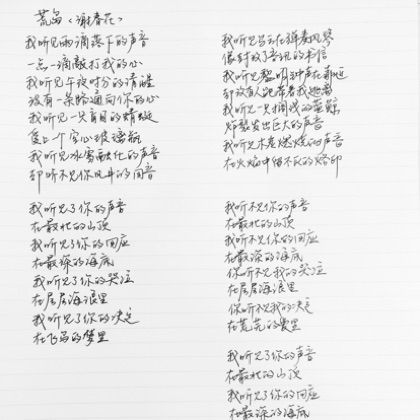 荒岛〈谢春花〉
我听见雨滴落下的声音
一点一滴敲打我的心
我听见午夜时分的清醒
没有一条路通向你的心
我听见一只盲目的蜻蜓
爱上一个空心玻璃瓶
我听见冰雪融化的声音
却听不见你风干的回音
我听见了你的声音
在最北的山顶
我听见了你的回应
在最深的海底
我听见了你的哭泣
在层层海浪里
我听见了你的决定
在飞鸟的梦里
我听见
我听见黎明钟声在靠近
却没有人
我听见一只搁浅的蓝鲸
发出巨大的声音
我听见木炭燃烧的声音
在火焰中留下灰的烙印
我听不见你的声音
在最北的山顶
我听不见你的回应
在最深的海底
你听不见我的哭泣
在层层海浪里
你听不见我的决定
在荒芜的梦里
我听见了你的声音
在最北的山顶
我听见了你的回应
在最深的海底